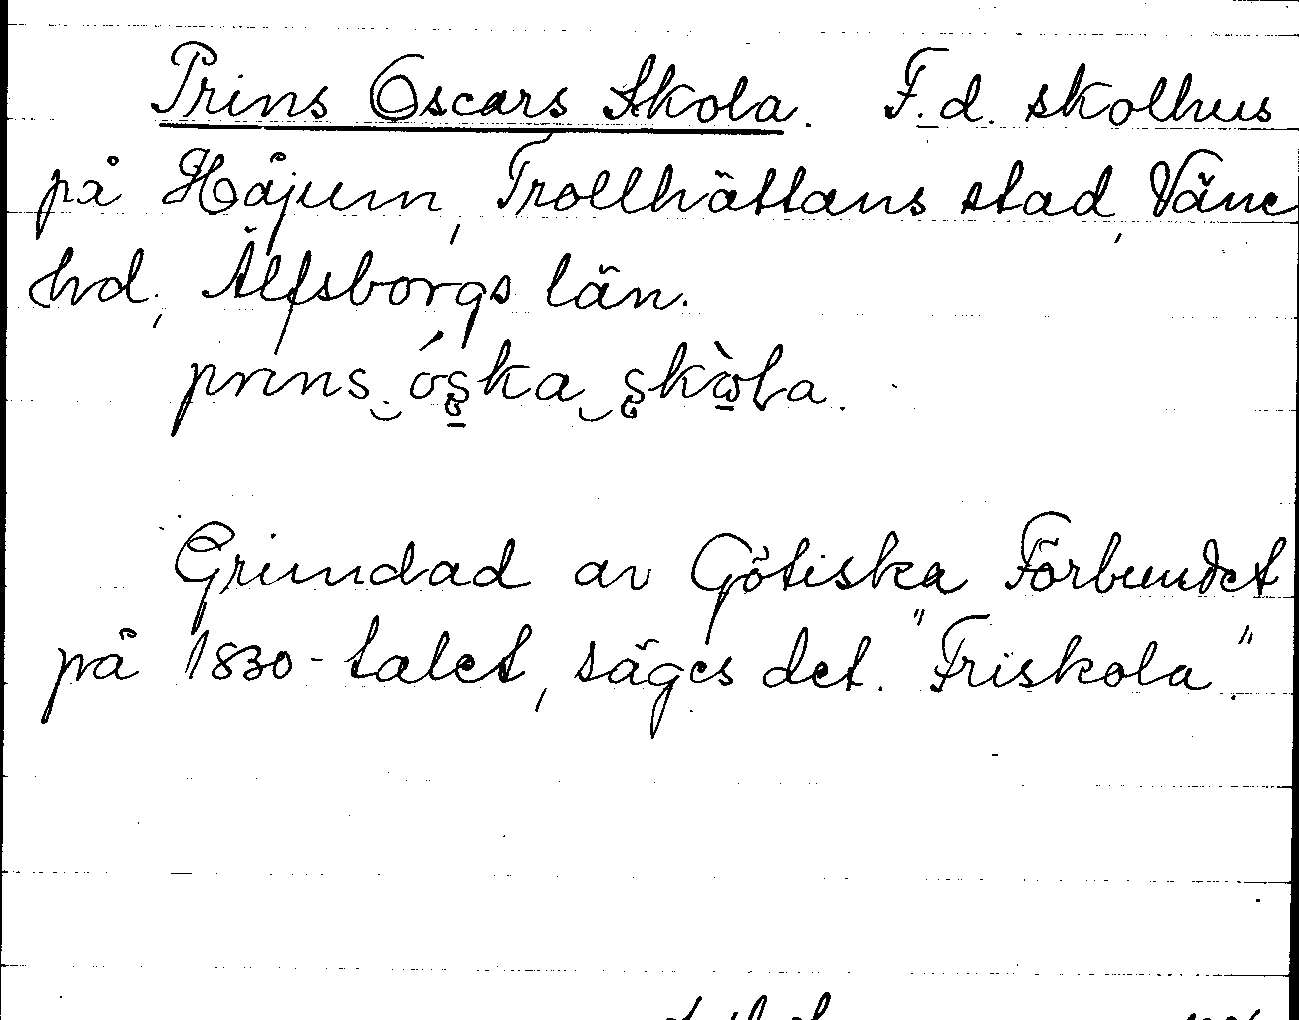 Prins Oscars Skola. F.d. skolhus
på Håjum, Trollhättans stad, Väne
hd, Älfsborgs län.
prins
Grundad av Götiska Förbundet
på 1830-talet, säges det. "Friskola".